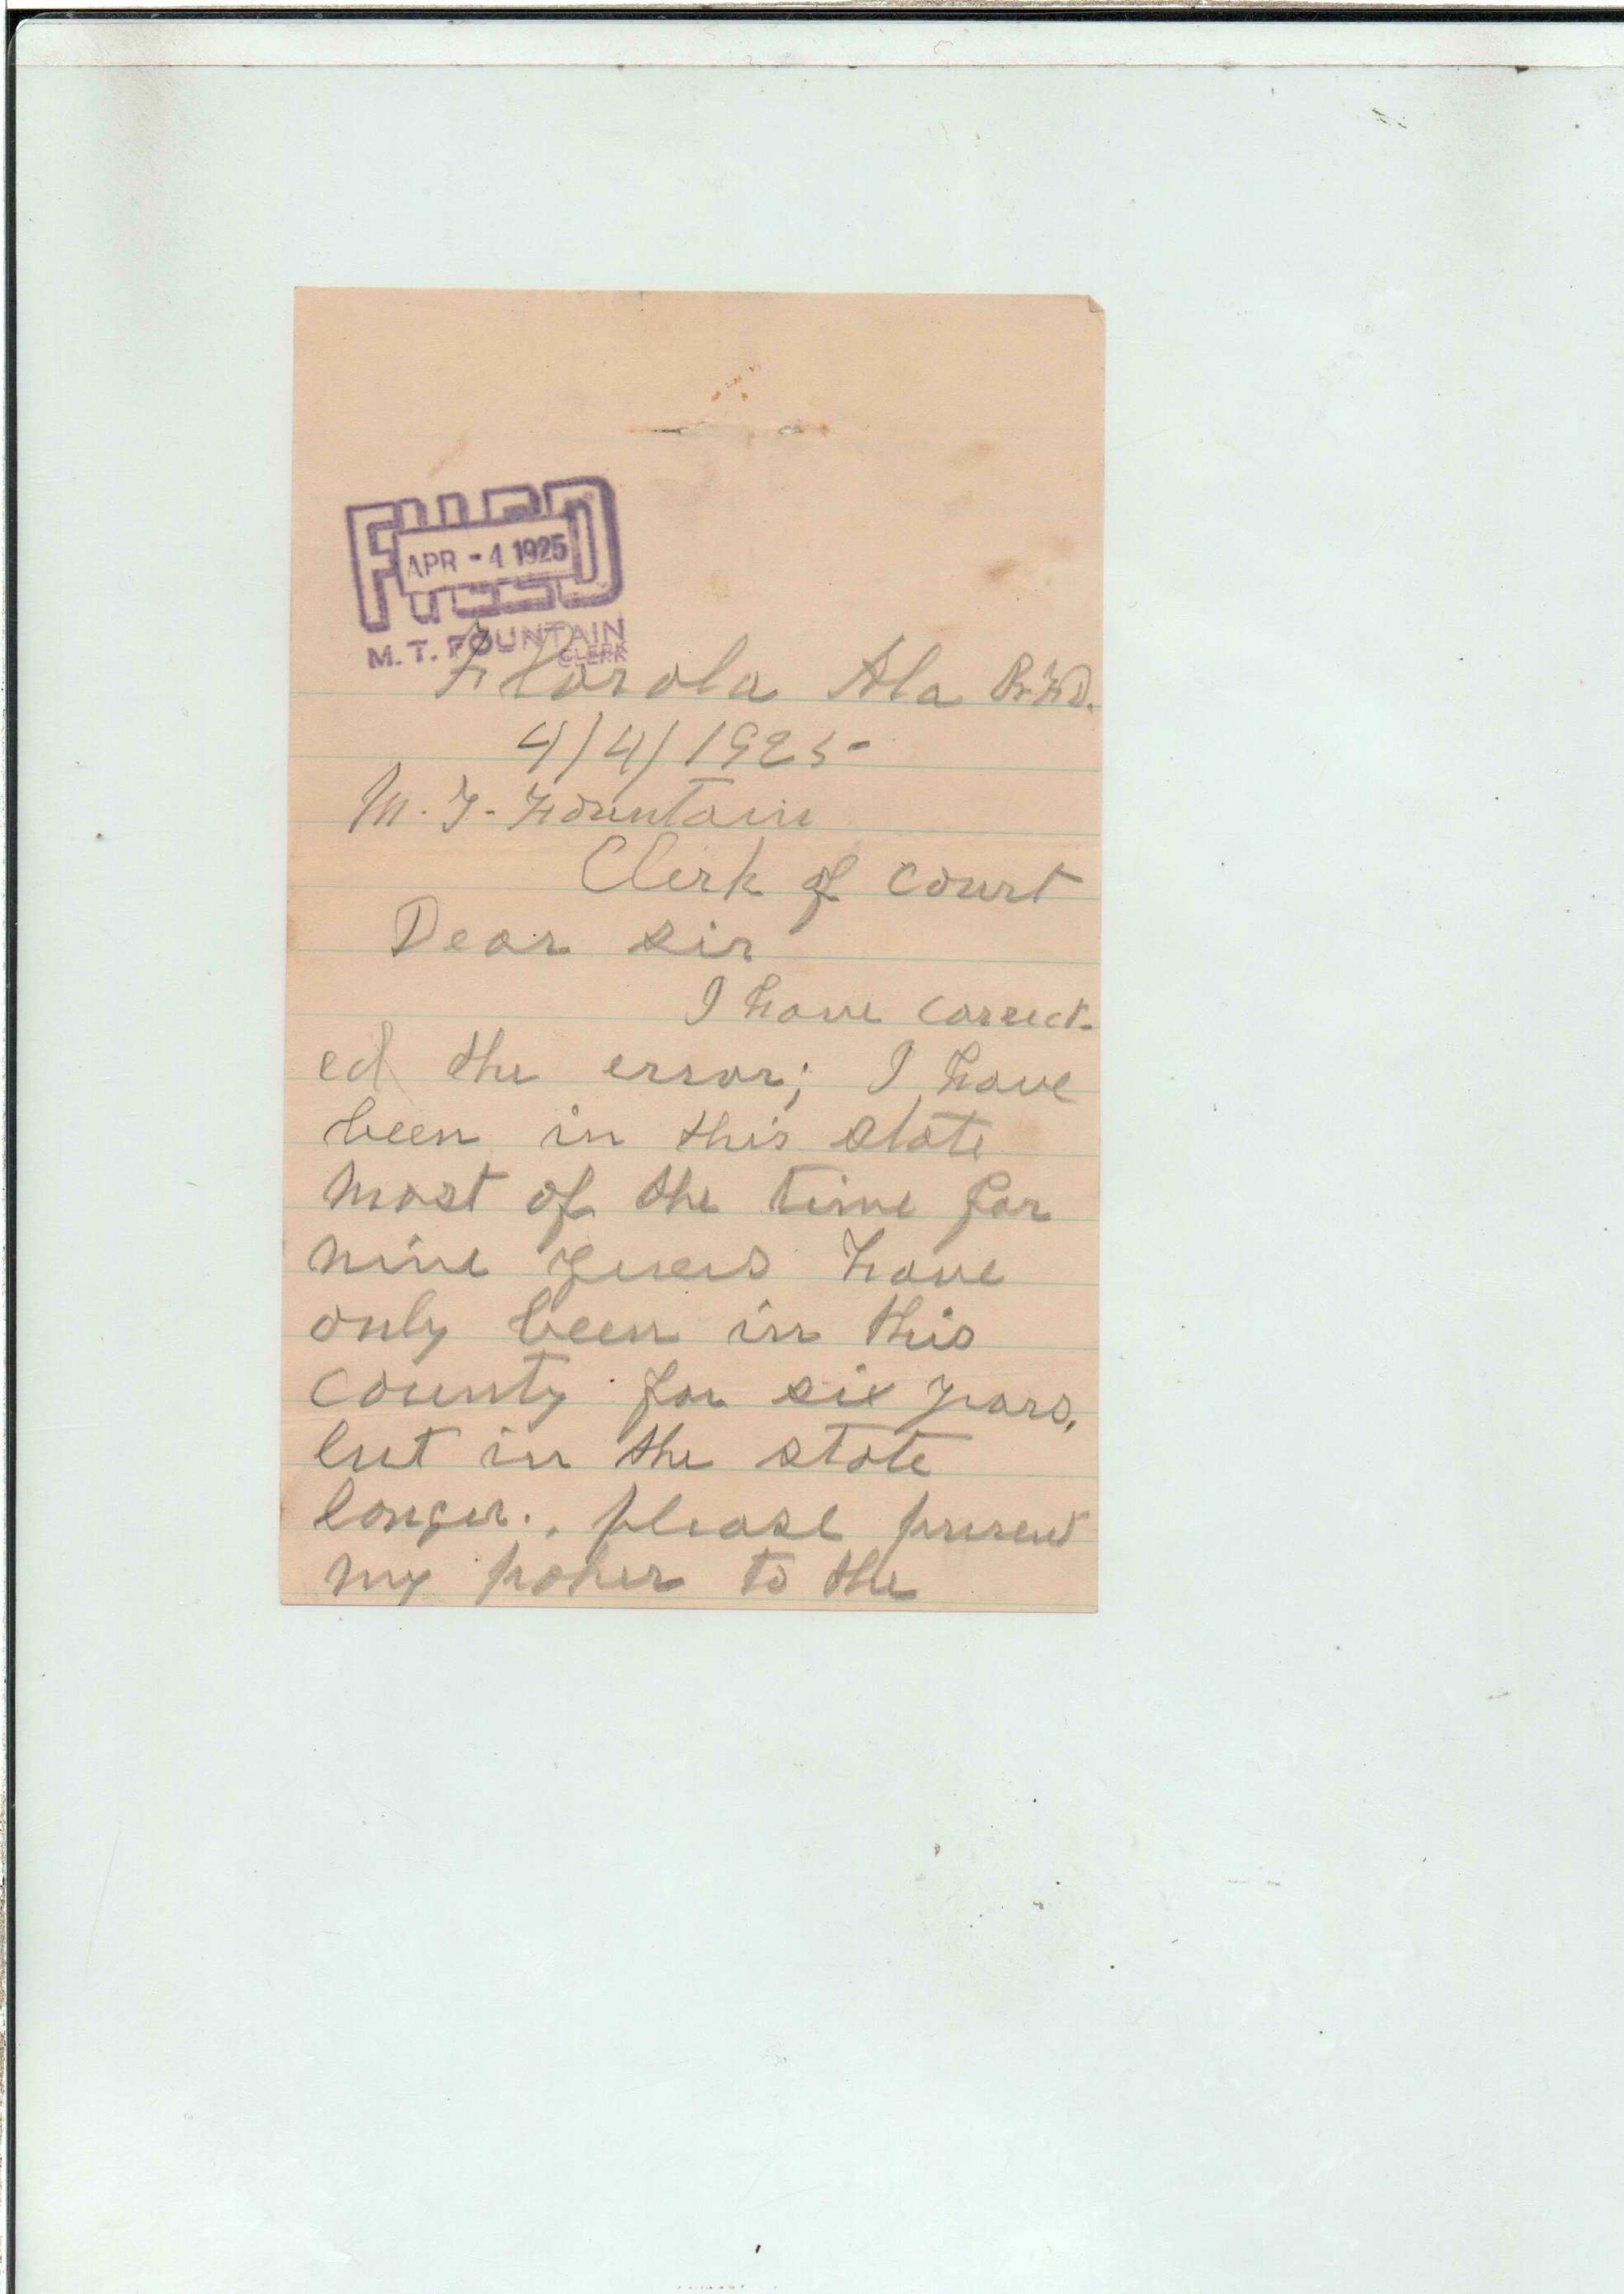 FILED
APR - 4 1925
M. T. FOUNTAIN
CLERK
Florola Ala R.F.D.
4/4/1925
M. T. Fountain
Clerk of court
Dear sir
I have correct-
ed the error; I have
been in this state
most of the time for
nine yuers have
only been in this
county for six years,
but in the state
longer., please present
my paper to the